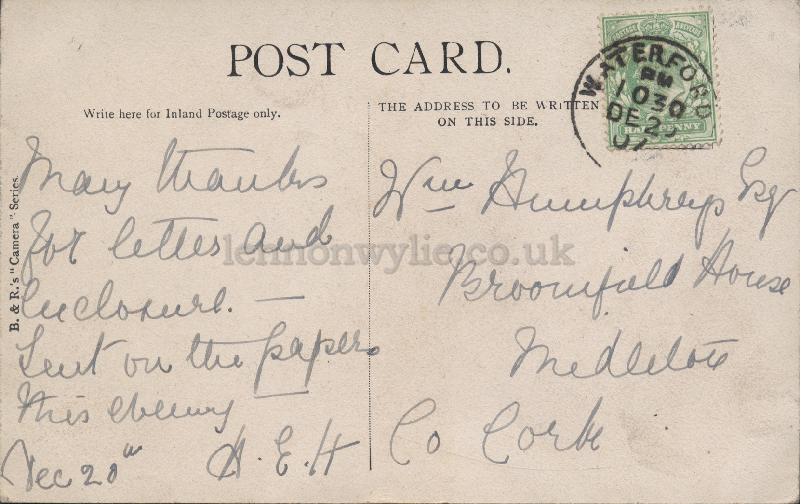 POST CARD.
Write here for Inland Postage only.
THE ADDRESS TO BE WRITTEN
ON THIS SIDE.
WATERFORD
PM
1030
DE 2
07
HALFPENNY
B. & R.'s "Camera" Series.
Many thanks
for letter and
Enclosure. —
Sent on the papers
this evening —
Dec 20th
A. E. H
Wm Humphreys Esq
Broomfield House
Midleton
Co Cork
lennonwylie.co.uk